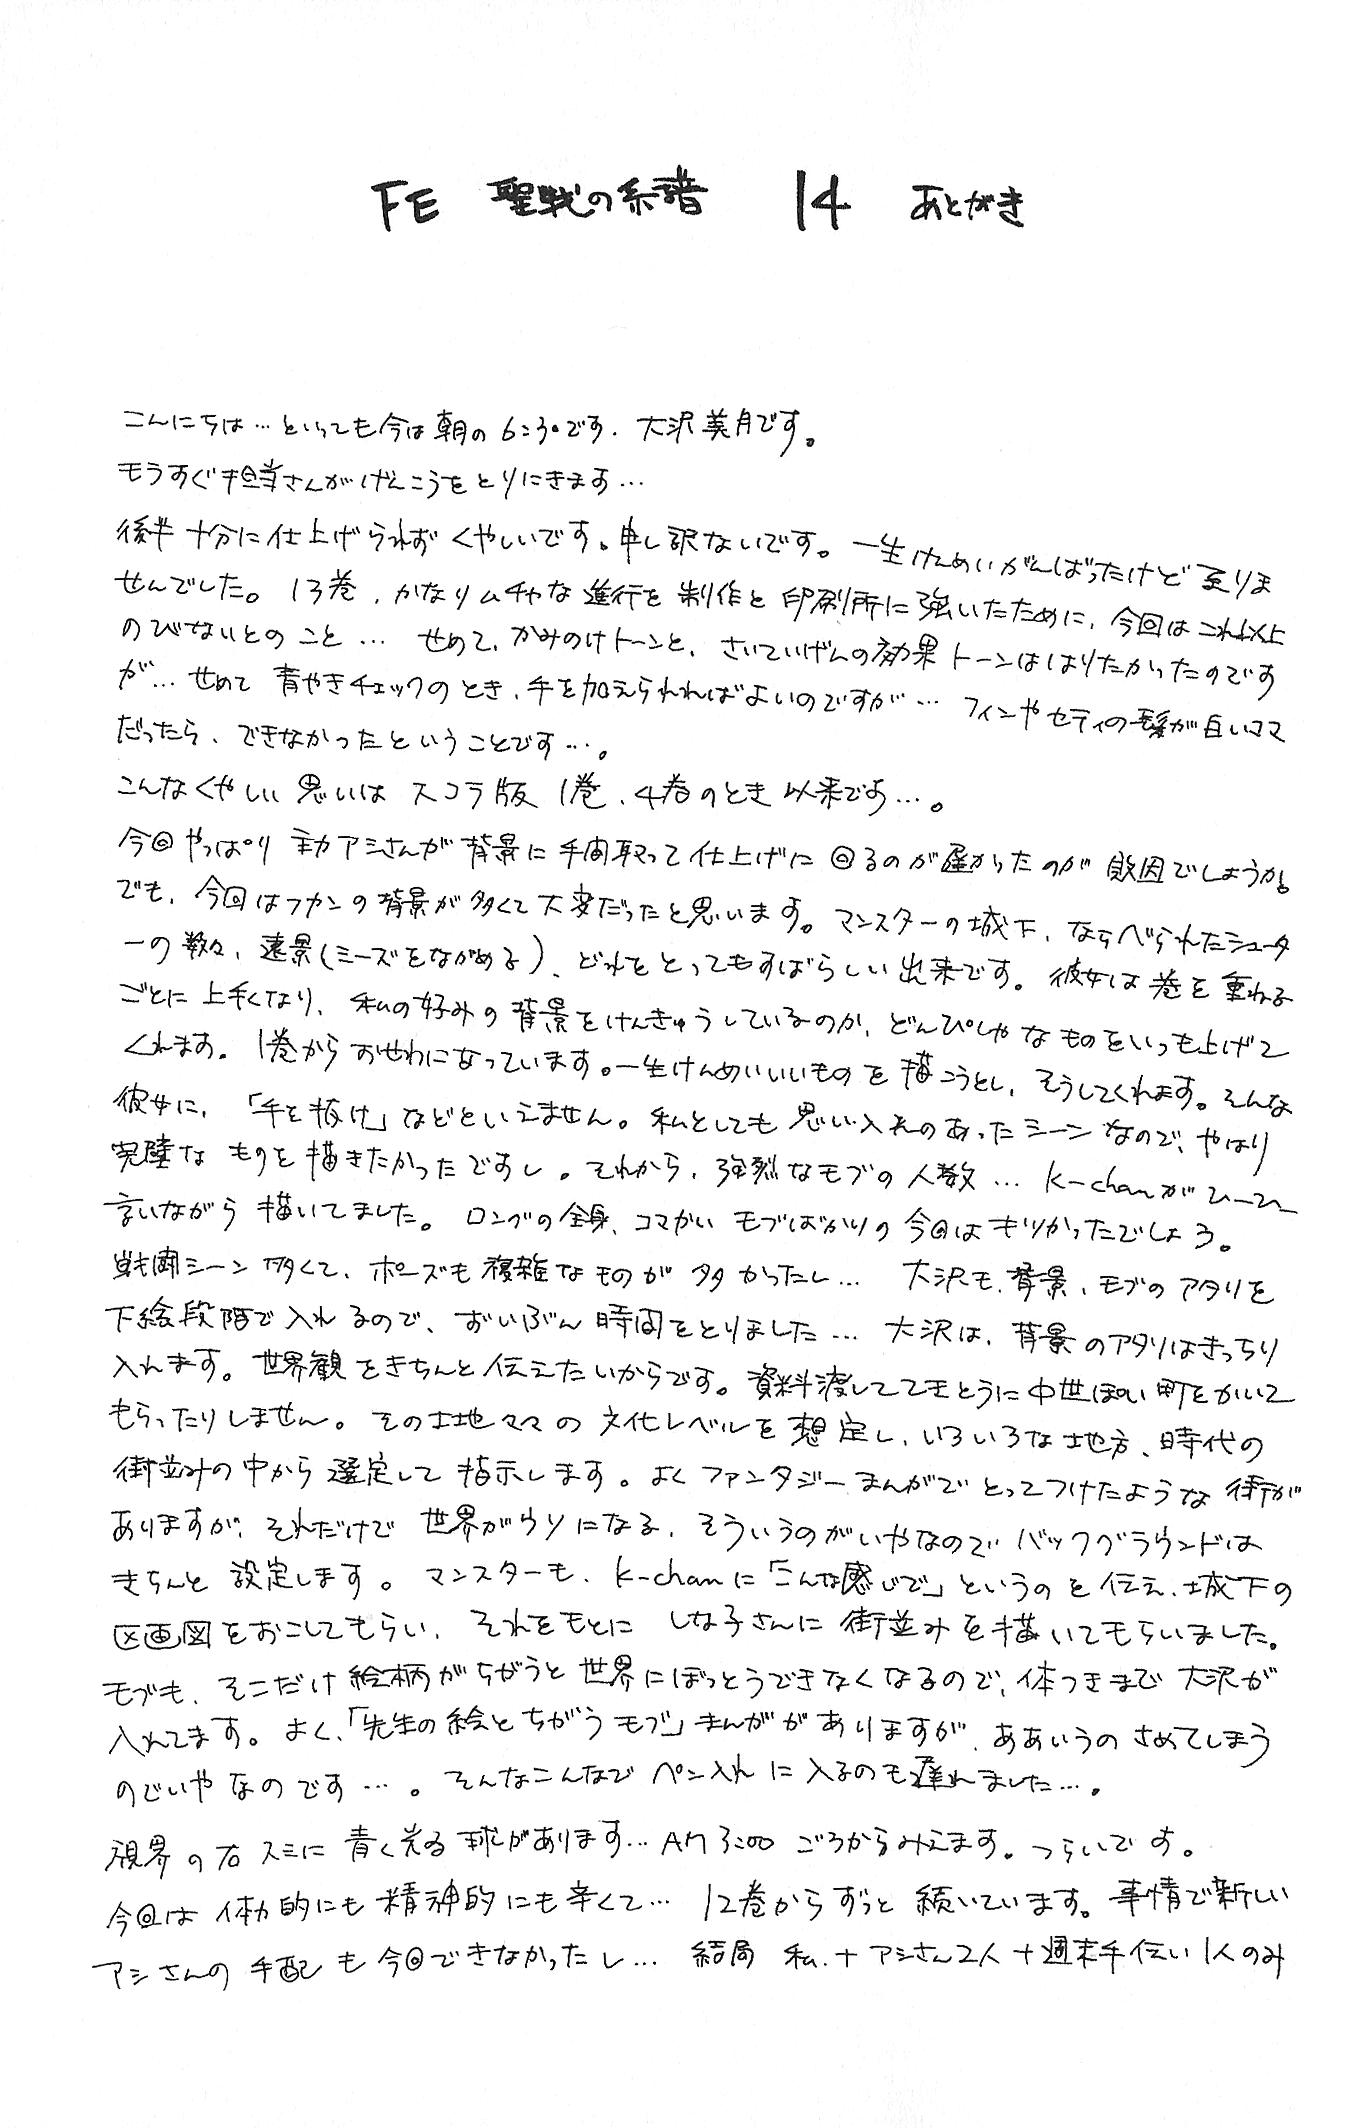 FE 聖戦の系譜 14 あとがき
こんにちは…といっても今は朝の6:30です. 大沢美月です。
モうすぐ担当さんがげんこうをとりにきます…
後半 十分に仕上げられず くやしいです。申し訳ないです。一生けんめいがんばったけど 至りま
せんでした。13巻、かなりムチャな進行を 制作と印刷所に強いたために、今回はこれ以上
のびないとのこと… せめて、かみのけトーンと、さいていげんの効果トーンははりたかったのです
が… せめて 青やきチェックのとき、手を加えられればよいのですが… フィンやセティの髪が白いママ
だったら、できなかったということです…。
こんなくやしい思いは スコラ版 1巻、4巻のとき以来です…。
今回やっぱり 主力アシさんが 背景に手間取って仕上げに回るのが遅かったのが 敗因でしょうか。
でも、今回はフカンの背景が多くて大変だったと思います。マンスターの城下、ならべられたシュータ
ーの数々、遠景(ミーズをながめる)、どれをとってもすばらしい出来です。彼女は巻を重ねる
ごとに上手くなり、私の好みの背景をけんきゅうしているのか、どんぴしゃなものをいつも上げて
くれます。1巻からおせわになっています。一生けんめいいいものを描こうとし、そうしてくれます。そんな
彼女に、「手を抜け」などといえません。私としても思い入れのあったシーンなので、やはり
完璧なものを描きたかったですし。それから、強烈なモブの人数… K-chanがひーひー
言いながら描いてました。ロングの全身、コマかいモブばかりの今回はキツかったでしょう。
戦闘シーン多くて、ポーズも複雑なものが多かったし… 大沢も、背景、モブのアタリを
下絵段階で入れるので、ずいぶん時間をとりました… 大沢は、背景のアタリはきっちり
入れます。世界観をきちんと伝えたいからです。資料渡してテキとうに中世ぽい町をかいて
もらったりしません。その土地ママの文化レベルを想定し、いろいろな地方、時代の
街並みの中から選定して指示します。よくファンタジーまんがでとってつけたような街が
ありますが、それだけで世界がウソになる、そういうのがいやなのでバックグラウンドは
きちんと設定します。マンスターも、K-chanに「こんな感じで」というのを伝え、城下の
区画図をおこしてもらい、それをもとにしな子さんに街並みを描いてもらいました。
モブも、そこだけ絵柄がちがうと世界にぼっとうできなくなるので、体つきまで大沢が
入れてます。よく、「先生の絵とちがうモブ」まんががありますが、ああいうのさめてしまう
のでいやなのです…。そんなこんなでペン入れに入るのも遅れました…。
視界の右スミに青く光る球があります… AM3:00ごろからみえます。つらいです。
今回は体力的にも精神的にも辛くて… 12巻からずっと続いています。事情で新しい
アシさんの手配も今回できなかったし… 結局 私+アシさん2人+週末手伝い1人のみ